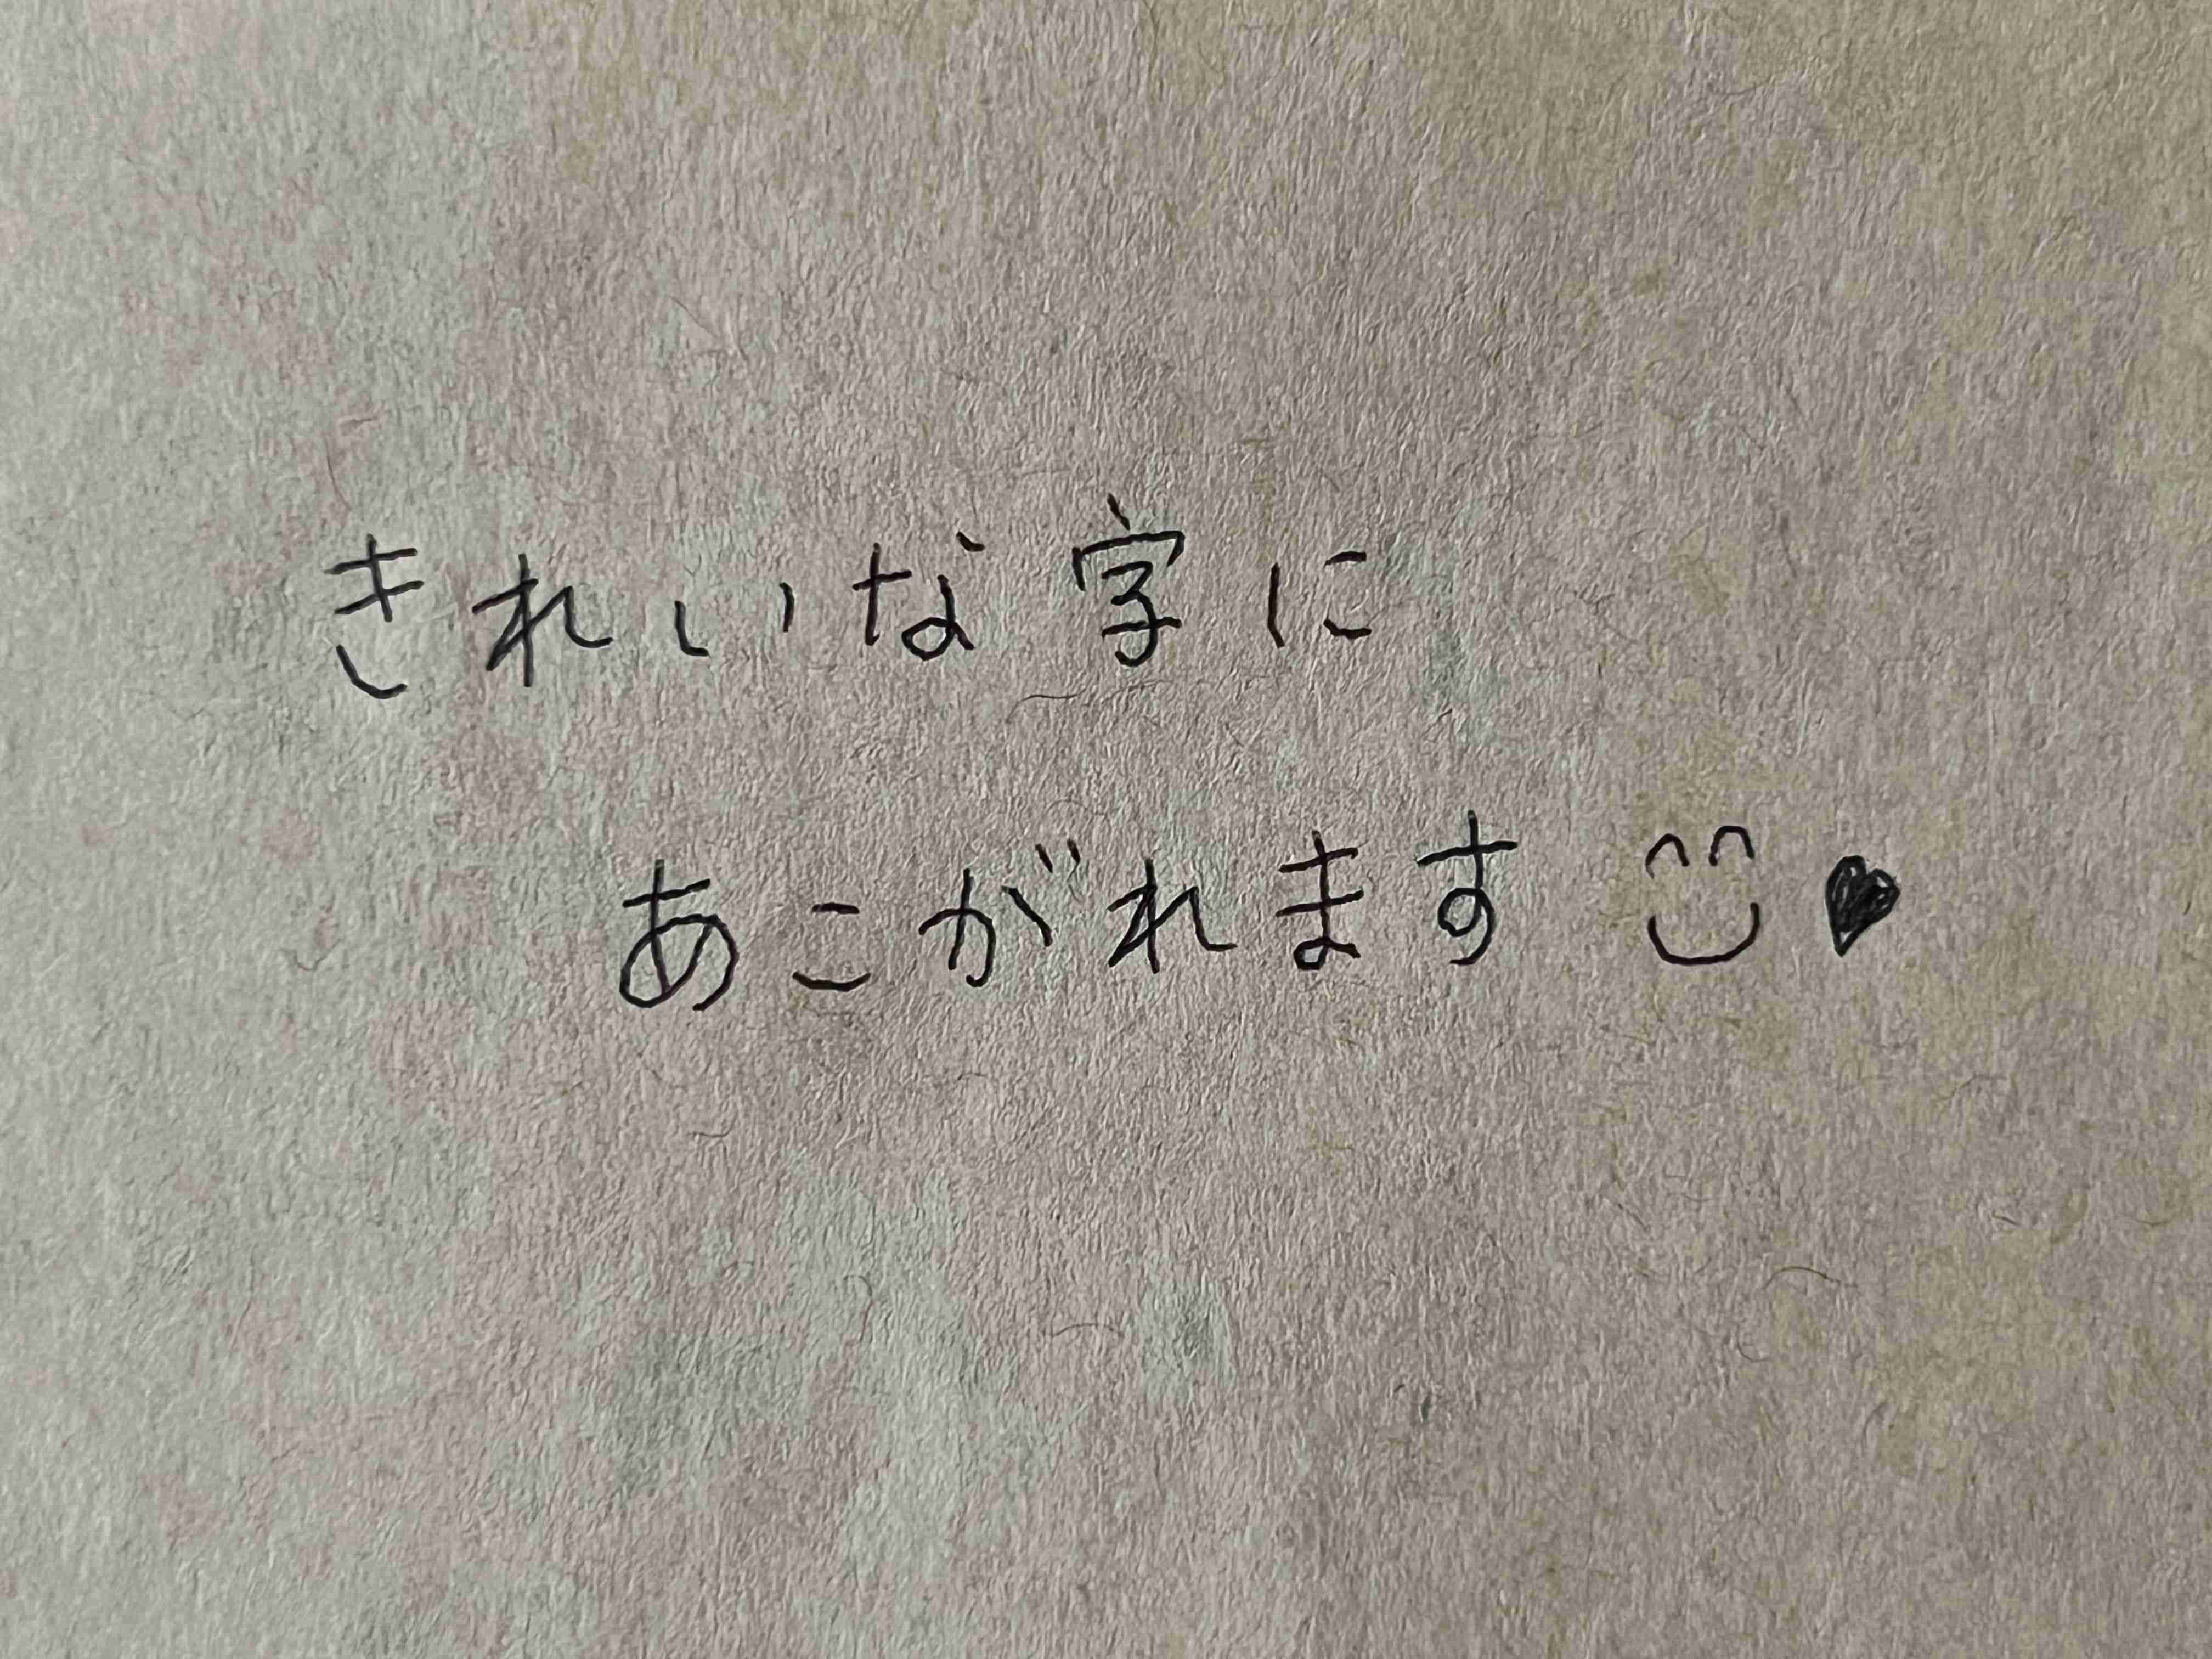 きれいな字に
あこがれます ♥